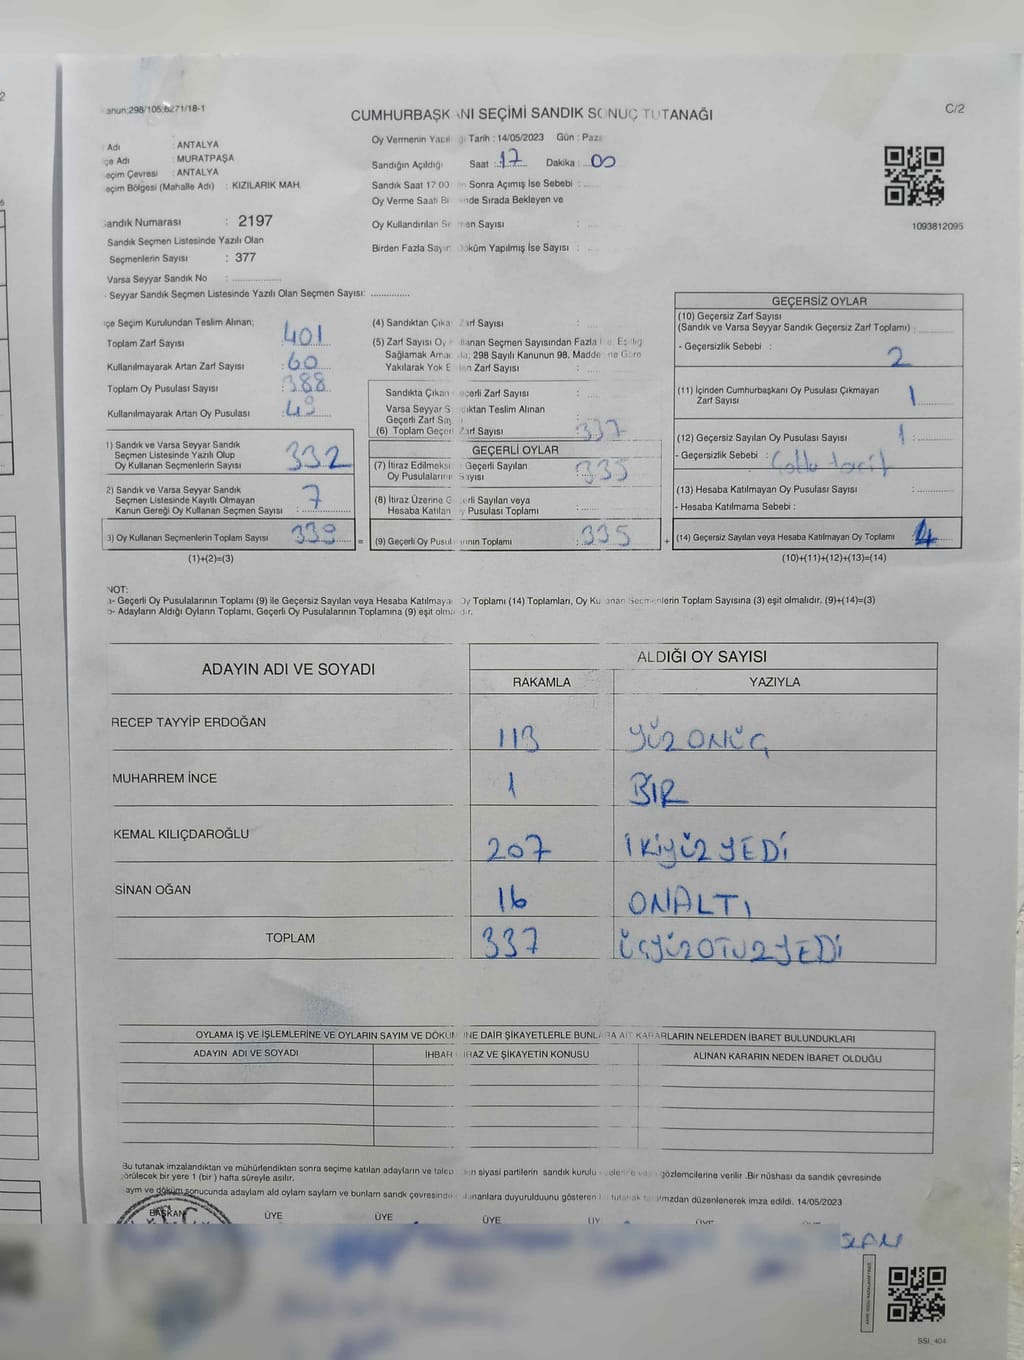 anun:298/105,6271/18-1
CUMHURBAŞK NI SEÇİMİ SANDIK SONUÇ TUTANAĞI
C/2
Adı : ANTALYA
çe Adı : MURATPAŞA
eçim Çevresi : ANTALYA
eçim Bölgesi (Mahalle Adı) : KIZILARIK MAH.
Oy Vermenin Yapıl ğı Tarih : 14/05/2023 Gün : Paza
Sandığın Açıldığı Saat : 17 Dakika : 00
Sandık Saat 17 00 n Sonra Açımış İse Sebebi :
Oy Verme Saati Bi nde Sırada Bekleyen ve
Oy Kullandırılan Se men Sayısı :
Birden Fazla Sayım Döküm Yapılmış İse Sayısı :
1093812095
andık Numarası : 2197
Sandık Seçmen Listesinde Yazılı Olan
Seçmenlerin Sayısı : 377
Varsa Seyyar Sandık No :
- Seyyar Sandık Seçmen Listesinde Yazılı Olan Seçmen Sayısı:
çe Seçim Kurulundan Teslim Alınan;
Toplam Zarf Sayısı : 401
Kullanılmayarak Artan Zarf Sayısı : 60
Toplam Oy Pusulası Sayısı : 388
Kullanılmayarak Artan Oy Pusulası : 49
1) Sandık ve Varsa Seyyar Sandık
Seçmen Listesinde Yazılı Olup
Oy Kullanan Seçmenlerin Sayısı : 332
2) Sandık ve Varsa Seyyar Sandık
Seçmen Listesinde Kayıtlı Olmayan
Kanun Gereği Oy Kullanan Seçmen Sayısı : 7
3) Oy Kullanan Seçmenlerin Toplam Sayısı : 339
(1)+(2)=(3)
(4) Sandıktan Çıka Zarf Sayısı :
(5) Zarf Sayısı Oy llanan Seçmen Sayısından Fazla İse, Eşitliği
Sağlamak Amac la; 298 Sayılı Kanunun 98. Maddesine Göre
Yakılarak Yok E len Zarf Sayısı :
Sandıkta Çıkan eçerli Zarf Sayısı :
Varsa Seyyar S dıktan Teslim Alınan
Geçerli Zarf Say ı :
(6) Toplam Geçerl Zarf Sayısı : 337
GEÇERLİ OYLAR
(7) İtiraz Edilmeksi Geçerli Sayılan
Oy Pusulalarının Sayısı : 335
(8) İtiraz Üzerine G erli Sayılan veya
Hesaba Katılan y Pusulası Toplamı :
(9) Geçerli Oy Pusul rının Toplamı : 335
GEÇERSİZ OYLAR
(10) Geçersiz Zarf Sayısı
(Sandık ve Varsa Seyyar Sandık Geçersiz Zarf Toplamı) :
- Geçersizlik Sebebi : 2
(11) İçinden Cumhurbaşkanı Oy Pusulası Çıkmayan
Zarf Sayısı 1
(12) Geçersiz Sayılan Oy Pusulası Sayısı 1 :
- Geçersizlik Sebebi :
(13) Hesaba Katılmayan Oy Pusulası Sayısı :
- Hesaba Katılmama Sebebi :
(14) Geçersiz Sayılan veya Hesaba Katılmayan Oy Toplamı 4
(10)+(11)+(12)+(13)=(14)
NOT:
a- Geçerli Oy Pusulalarının Toplamı (9) ile Geçersiz Sayılan veya Hesaba Katılmaya Oy Toplamı (14) Toplamları, Oy Ku anan Seçmenlerin Toplam Sayısına (3) eşit olmalıdır. (9)+(14)=(3)
b- Adayların Aldığı Oyların Toplamı, Geçerli Oy Pusulalarının Toplamına (9) eşit olma dır.
ADAYIN ADI VE SOYADI
ALDIĞI OY SAYISI
RAKAMLA YAZIYLA
RECEP TAYYİP ERDOĞAN 113 YÜZONÜÇ
MUHARREM İNCE 1 BİR
KEMAL KILIÇDAROĞLU 207 İKİYÜZYEDİ
SİNAN OĞAN 16 ONALTI
TOPLAM 337 ÜÇYÜZOTUZYEDİ
OYLAMA İŞ VE İŞLEMLERİNE VE OYLARIN SAYIM VE DÖKÜM NE DAİR ŞİKAYETLERLE BUNLARA AİT KARARLARIN NELERDEN İBARET BULUNDUKLARI
ADAYIN ADI VE SOYADI İHBAR İRAZ VE ŞİKAYETİN KONUSU ALINAN KARARIN NEDEN İBARET OLDUĞU
Bu tutanak imzalandıktan ve mühürlendikten sonra seçime katılan adayların ve talep en siyasi partilerin sandık kurulu gözlemcilerine verilir .Bir nüshası da sandık çevresinde
örülecek bir yere 1 (bir ) hafta süreyle asılır.
aym ve döküm sonucunda adaylarm ald oylarm saylarm ve bunlarm sandk çevresinde lunanlara duyurulduunu gösteren tutanak tarafmzdan düzenlenerek imza edildi. 14/05/2023
BAŞKAN ÜYE ÜYE ÜYE
SSİ_404